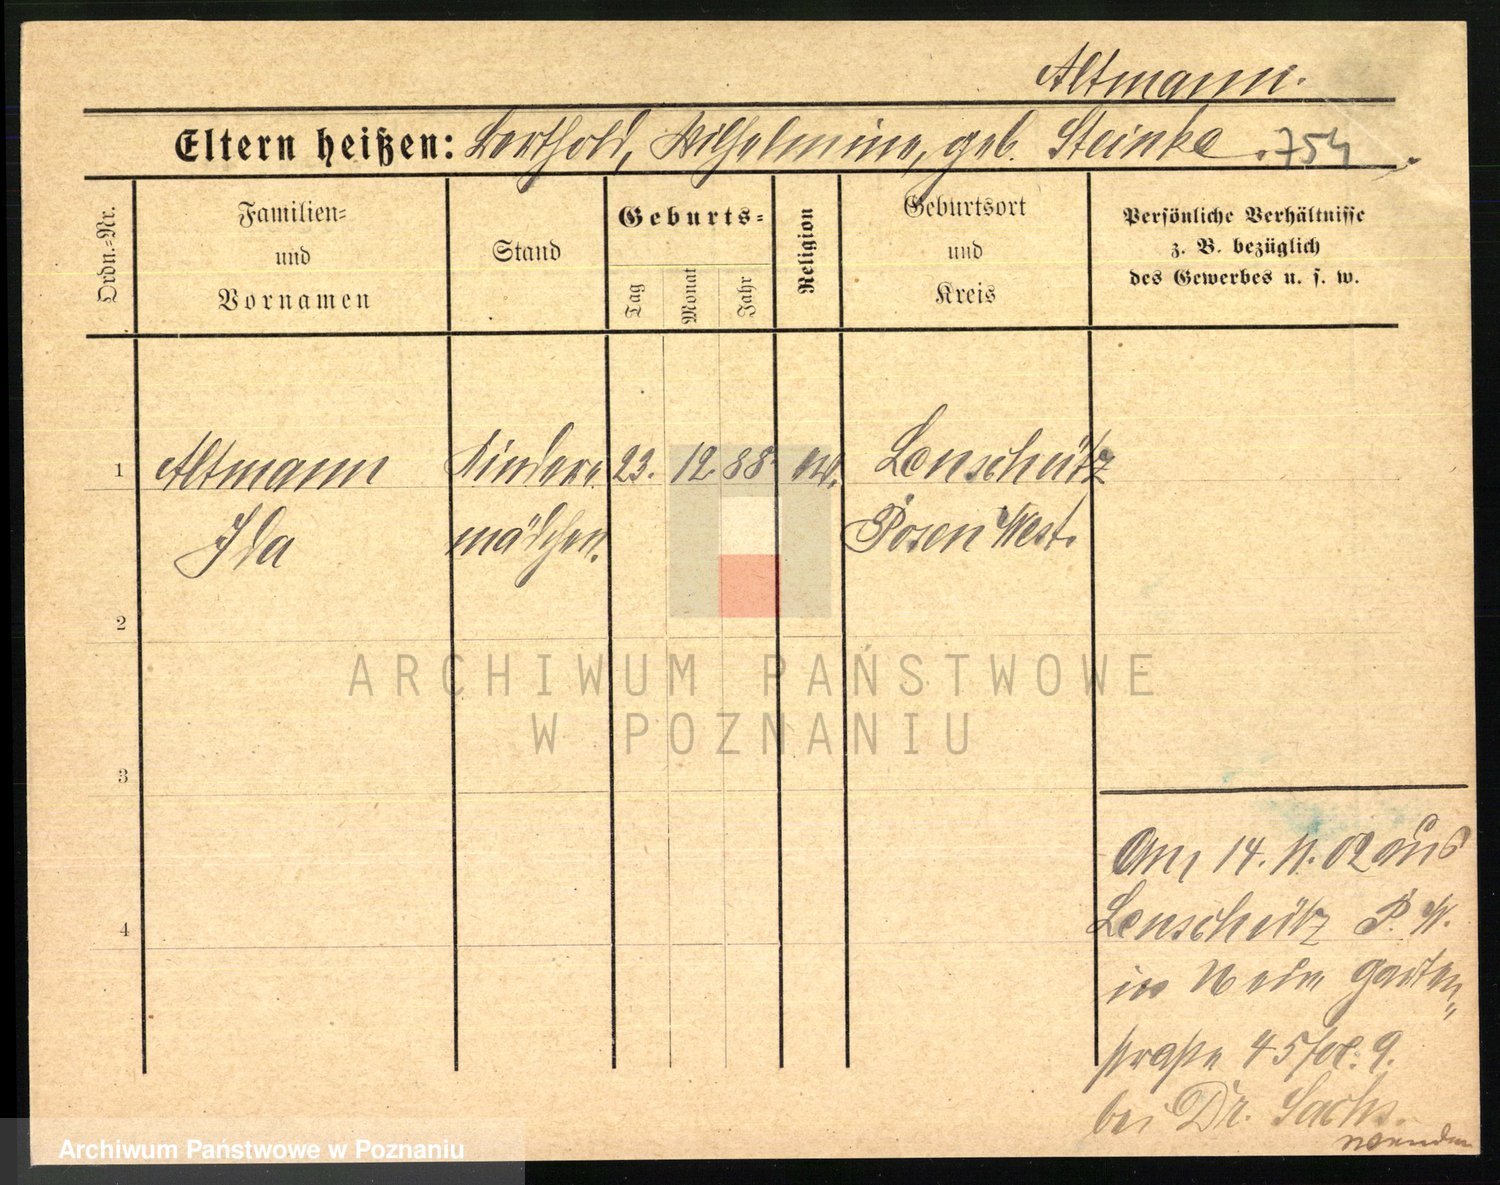 Altmann.
Eltern heißen: Berthold, Wilhelmine, geb. Steinke. 754
Ordn.-Nr.
Familien-
und
Vornamen
Stand
Geburts-
Tag
Monat
Jahr
Religion
Geburtsort
und
Kreis
Persönliche Verhältnisse
z. B. bezüglich
des Gewerbes u. s. w.
1 Altmann Kinder- 23. 12. 88. Lenschütz
Ida mädchen. Posen West.
2
3
4
Am 14. 11. 02 aus
Lenschütz P. W.
in Garten-
straße 45 9.
bei Dr. Sachs.
wenden
ARCHIWUM PAŃSTWOWE
W POZNANIU
Archiwum Państwowe w Poznaniu